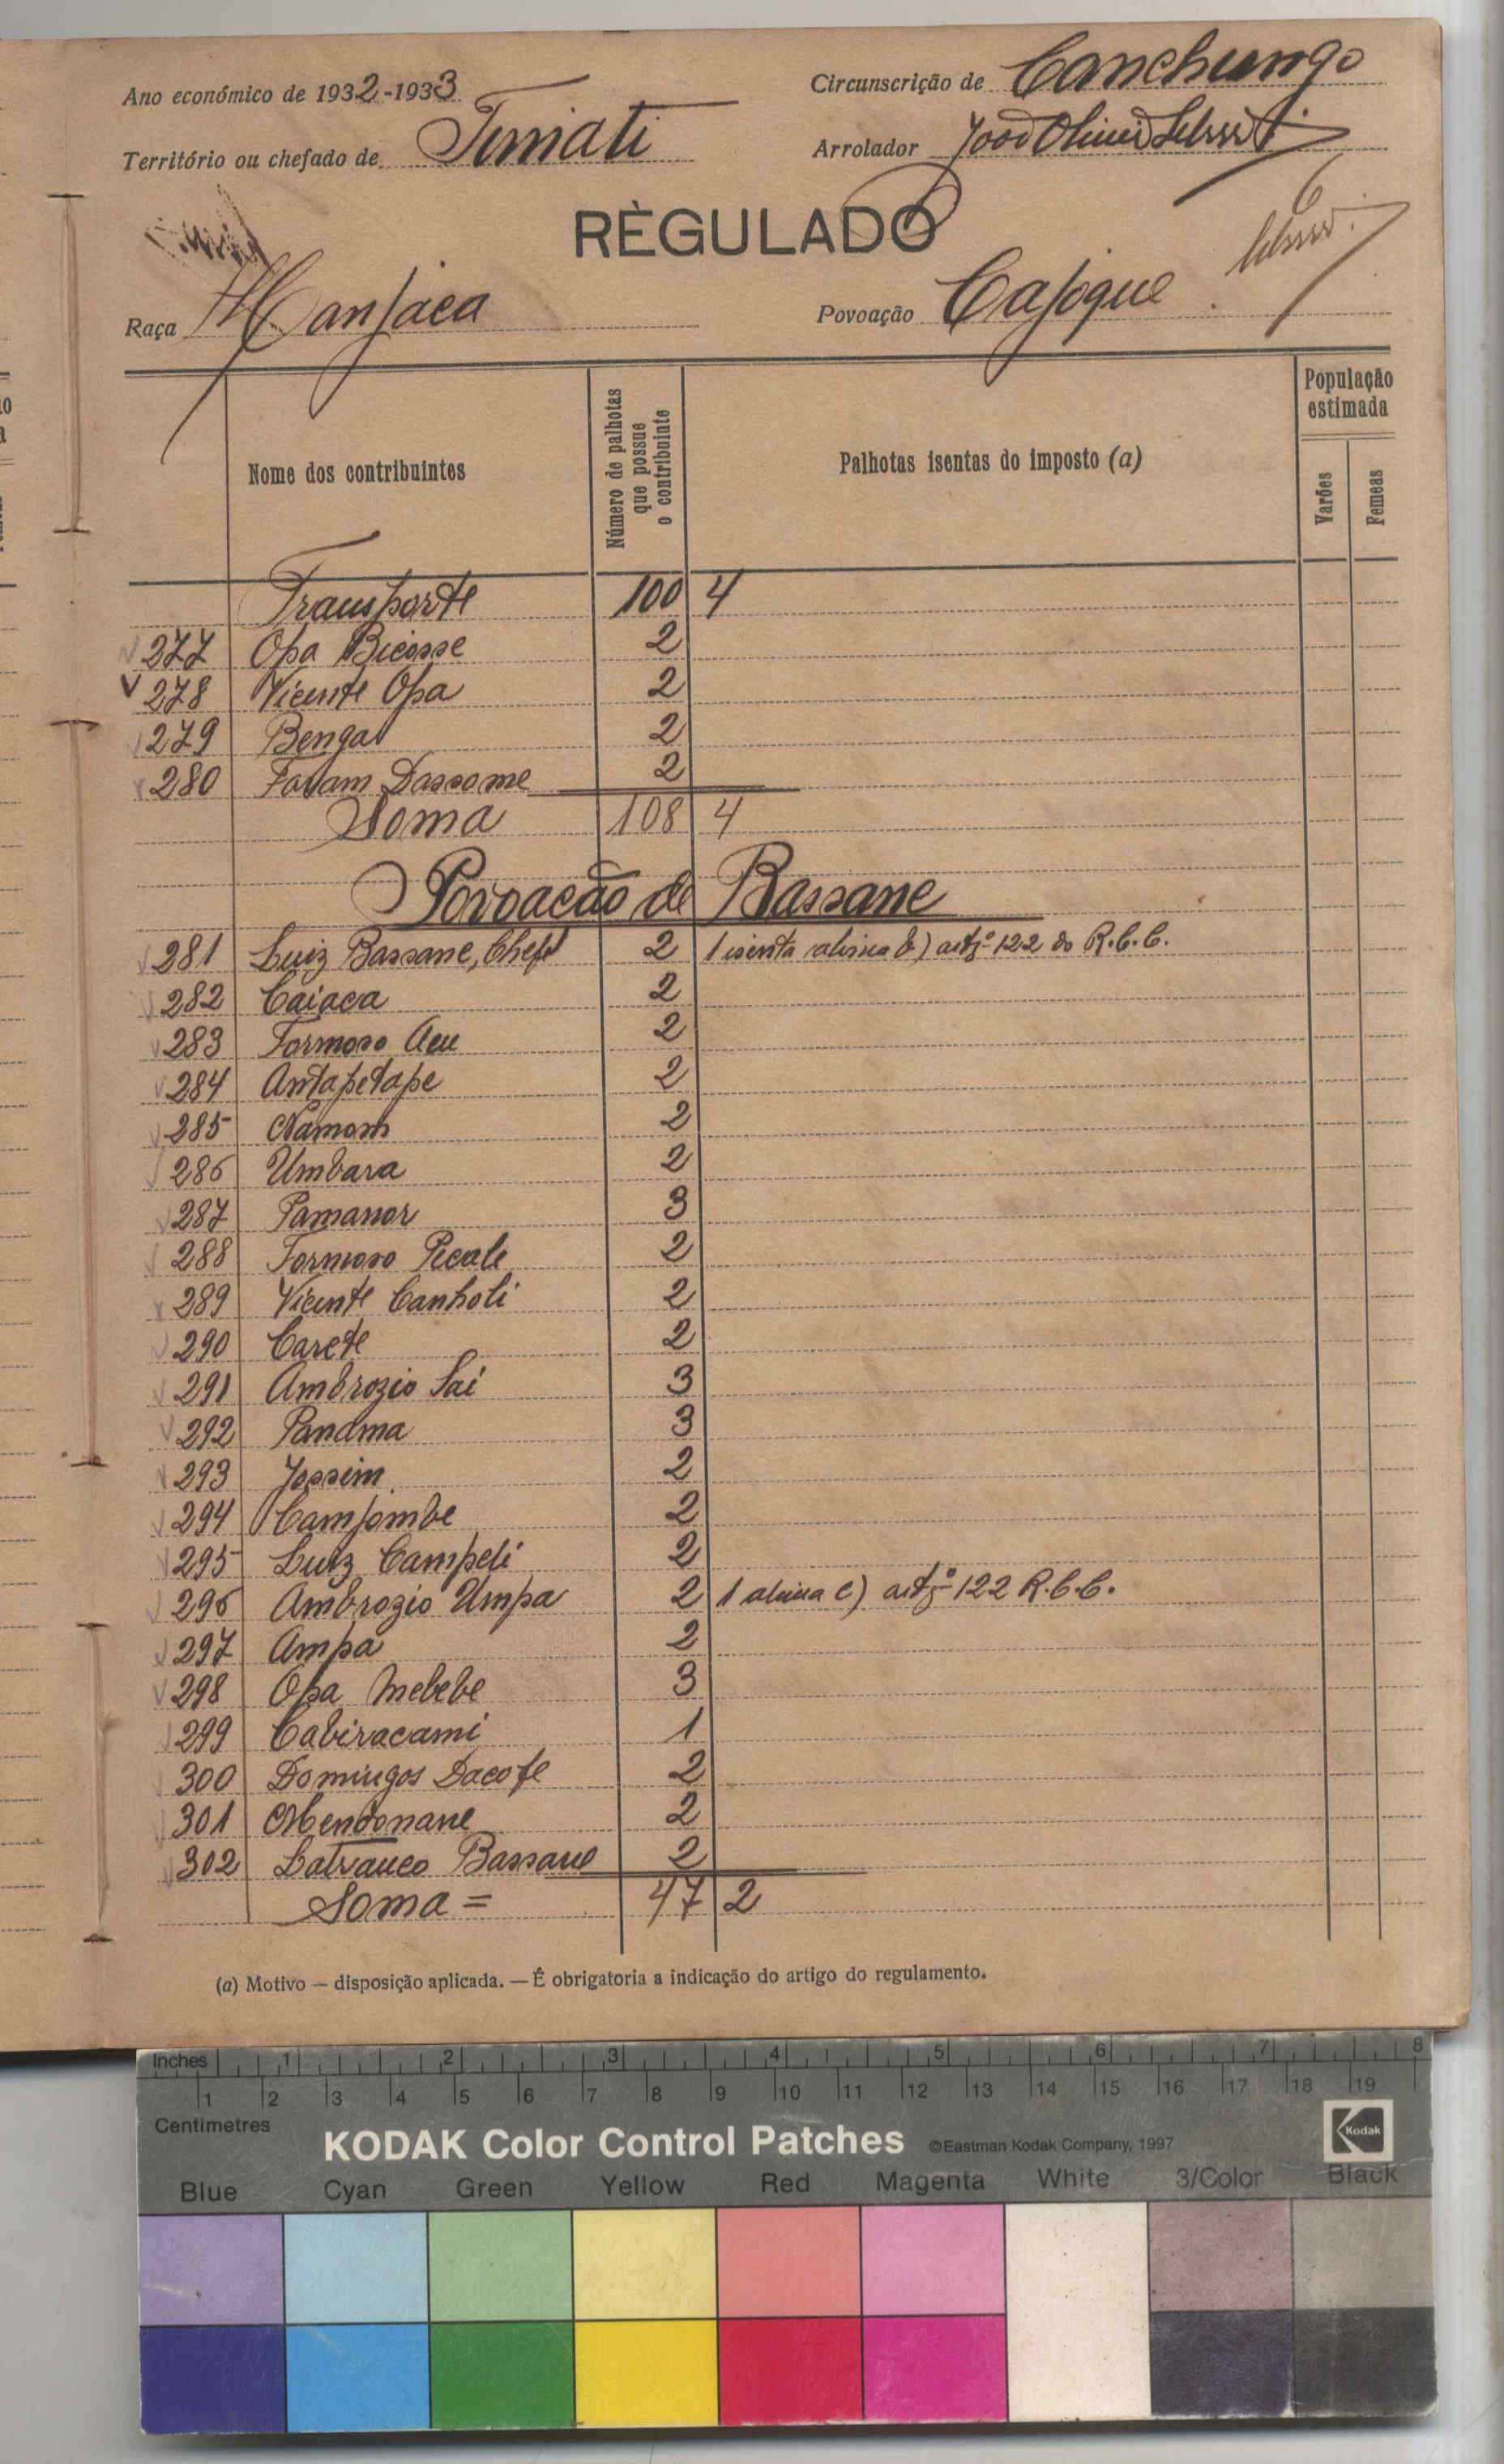 Ano económico de 1932-1933
Circunscrição de Canchungo
Território ou chefado de Timati
Arrolador João
RÈGULADO
6
Raça Manjaca
Povoação Cajoque
Nome dos contribuintes
Número de palhotas que possue o contribuinte
Palhotas isentas do imposto (a)
População estimada
Varões
Femeas
Transporte 100 4
277 Opa Bicosse 2
278 Vicente Opa 2
279 Benga 2
280 Favam Dassome 2
Soma 108 4
Povoacão de Bassane
281 Luiz Bassane, Chefe 2 1 isenta alinea b) artgº 122 do R.C.C.
282 Caiaca 2
283 Formoso Aeu 2
284 Antapetape 2
285 Namom 2
286 Umbara 2
287 Pamanor 3
288 Formoso Pecale 2
289 Vicente Canholi 2
290 Carete 2
291 Ambrozio Sai 3
292 Pandma 3
293 Jossim 2
294 Camjombe 2
295 Luiz Campeli 2
296 Ambrozio Umpa 2 1 alinea c) artgº 122 R.C.C.
297 Ampa 2
298 Opa Mebebe 3
299 Cabiracami 1
300 Domingos Dacofe 2
301 Mendonane 2
302 Latranco Bassane 2
Soma = 47 2
(a) Motivo — disposição aplicada. — É obrigatoria a indicação do artigo do regulamento.
Inches 1 2 3 4 5 6 7 8
1 2 3 4 5 6 7 8 9 10 11 12 13 14 15 16 17 18 19
Centimetres
KODAK Color Control Patches ©Eastman Kodak Company, 1997 Kodak
Blue Cyan Green Yellow Red Magenta White 3/Color Black